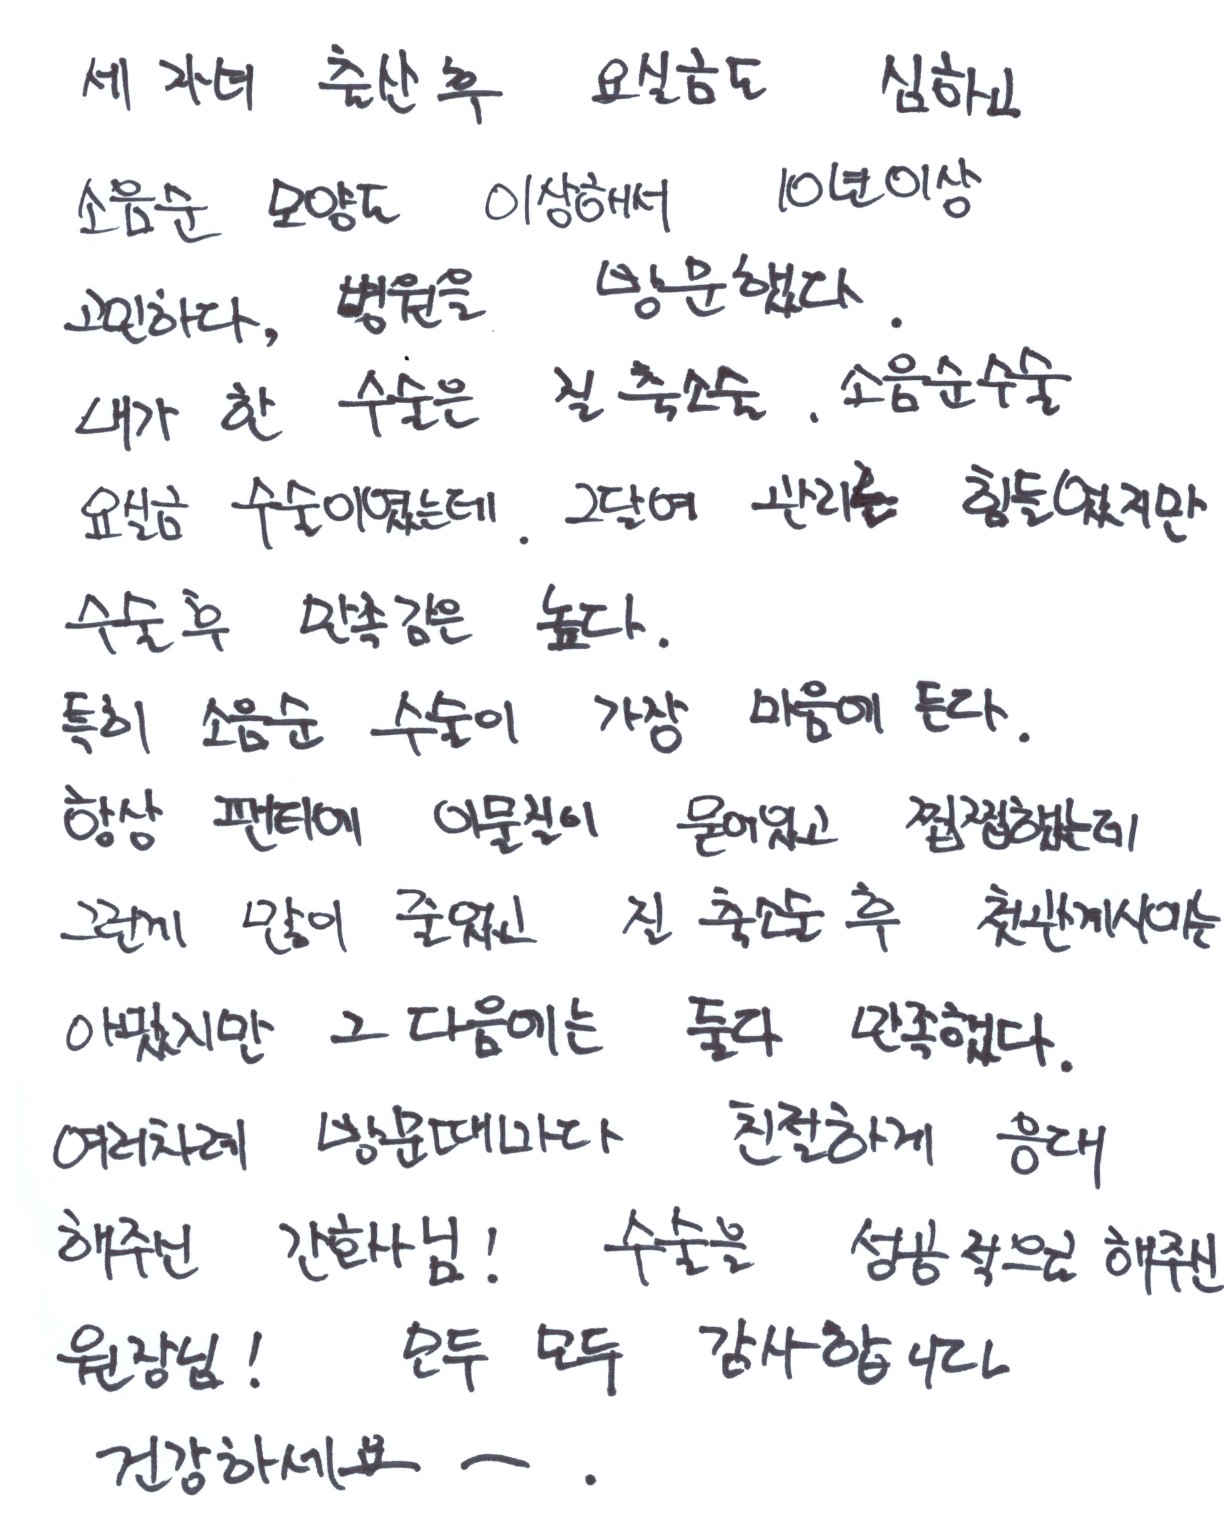 세 자녀 출산 후 요실금도 심하고
소음순 모양도 이상해서 10년이상
고민하다, 병원을 방문했다.
내가 한 수술은 질 축소술. 소음순수술
요실금 수술이였는데. 그달여 관리는 힘들었지만
수술 후 만족감은 높다.
특히 소음순 수술이 가장 마음에 든다.
항상 팬티에 이물질이 묻어있고 찝찝했는데
그런게 많이 줄었고 질 축소술 후 첫관계시에는
아팠지만 그 다음에는 둘다 만족했다.
여러차례 방문때마다 친절하게 응대
해주신 간호사님! 수술을 성공적으로 해주신
원장님! 모두 모두 감사합니다
건강하세요~.